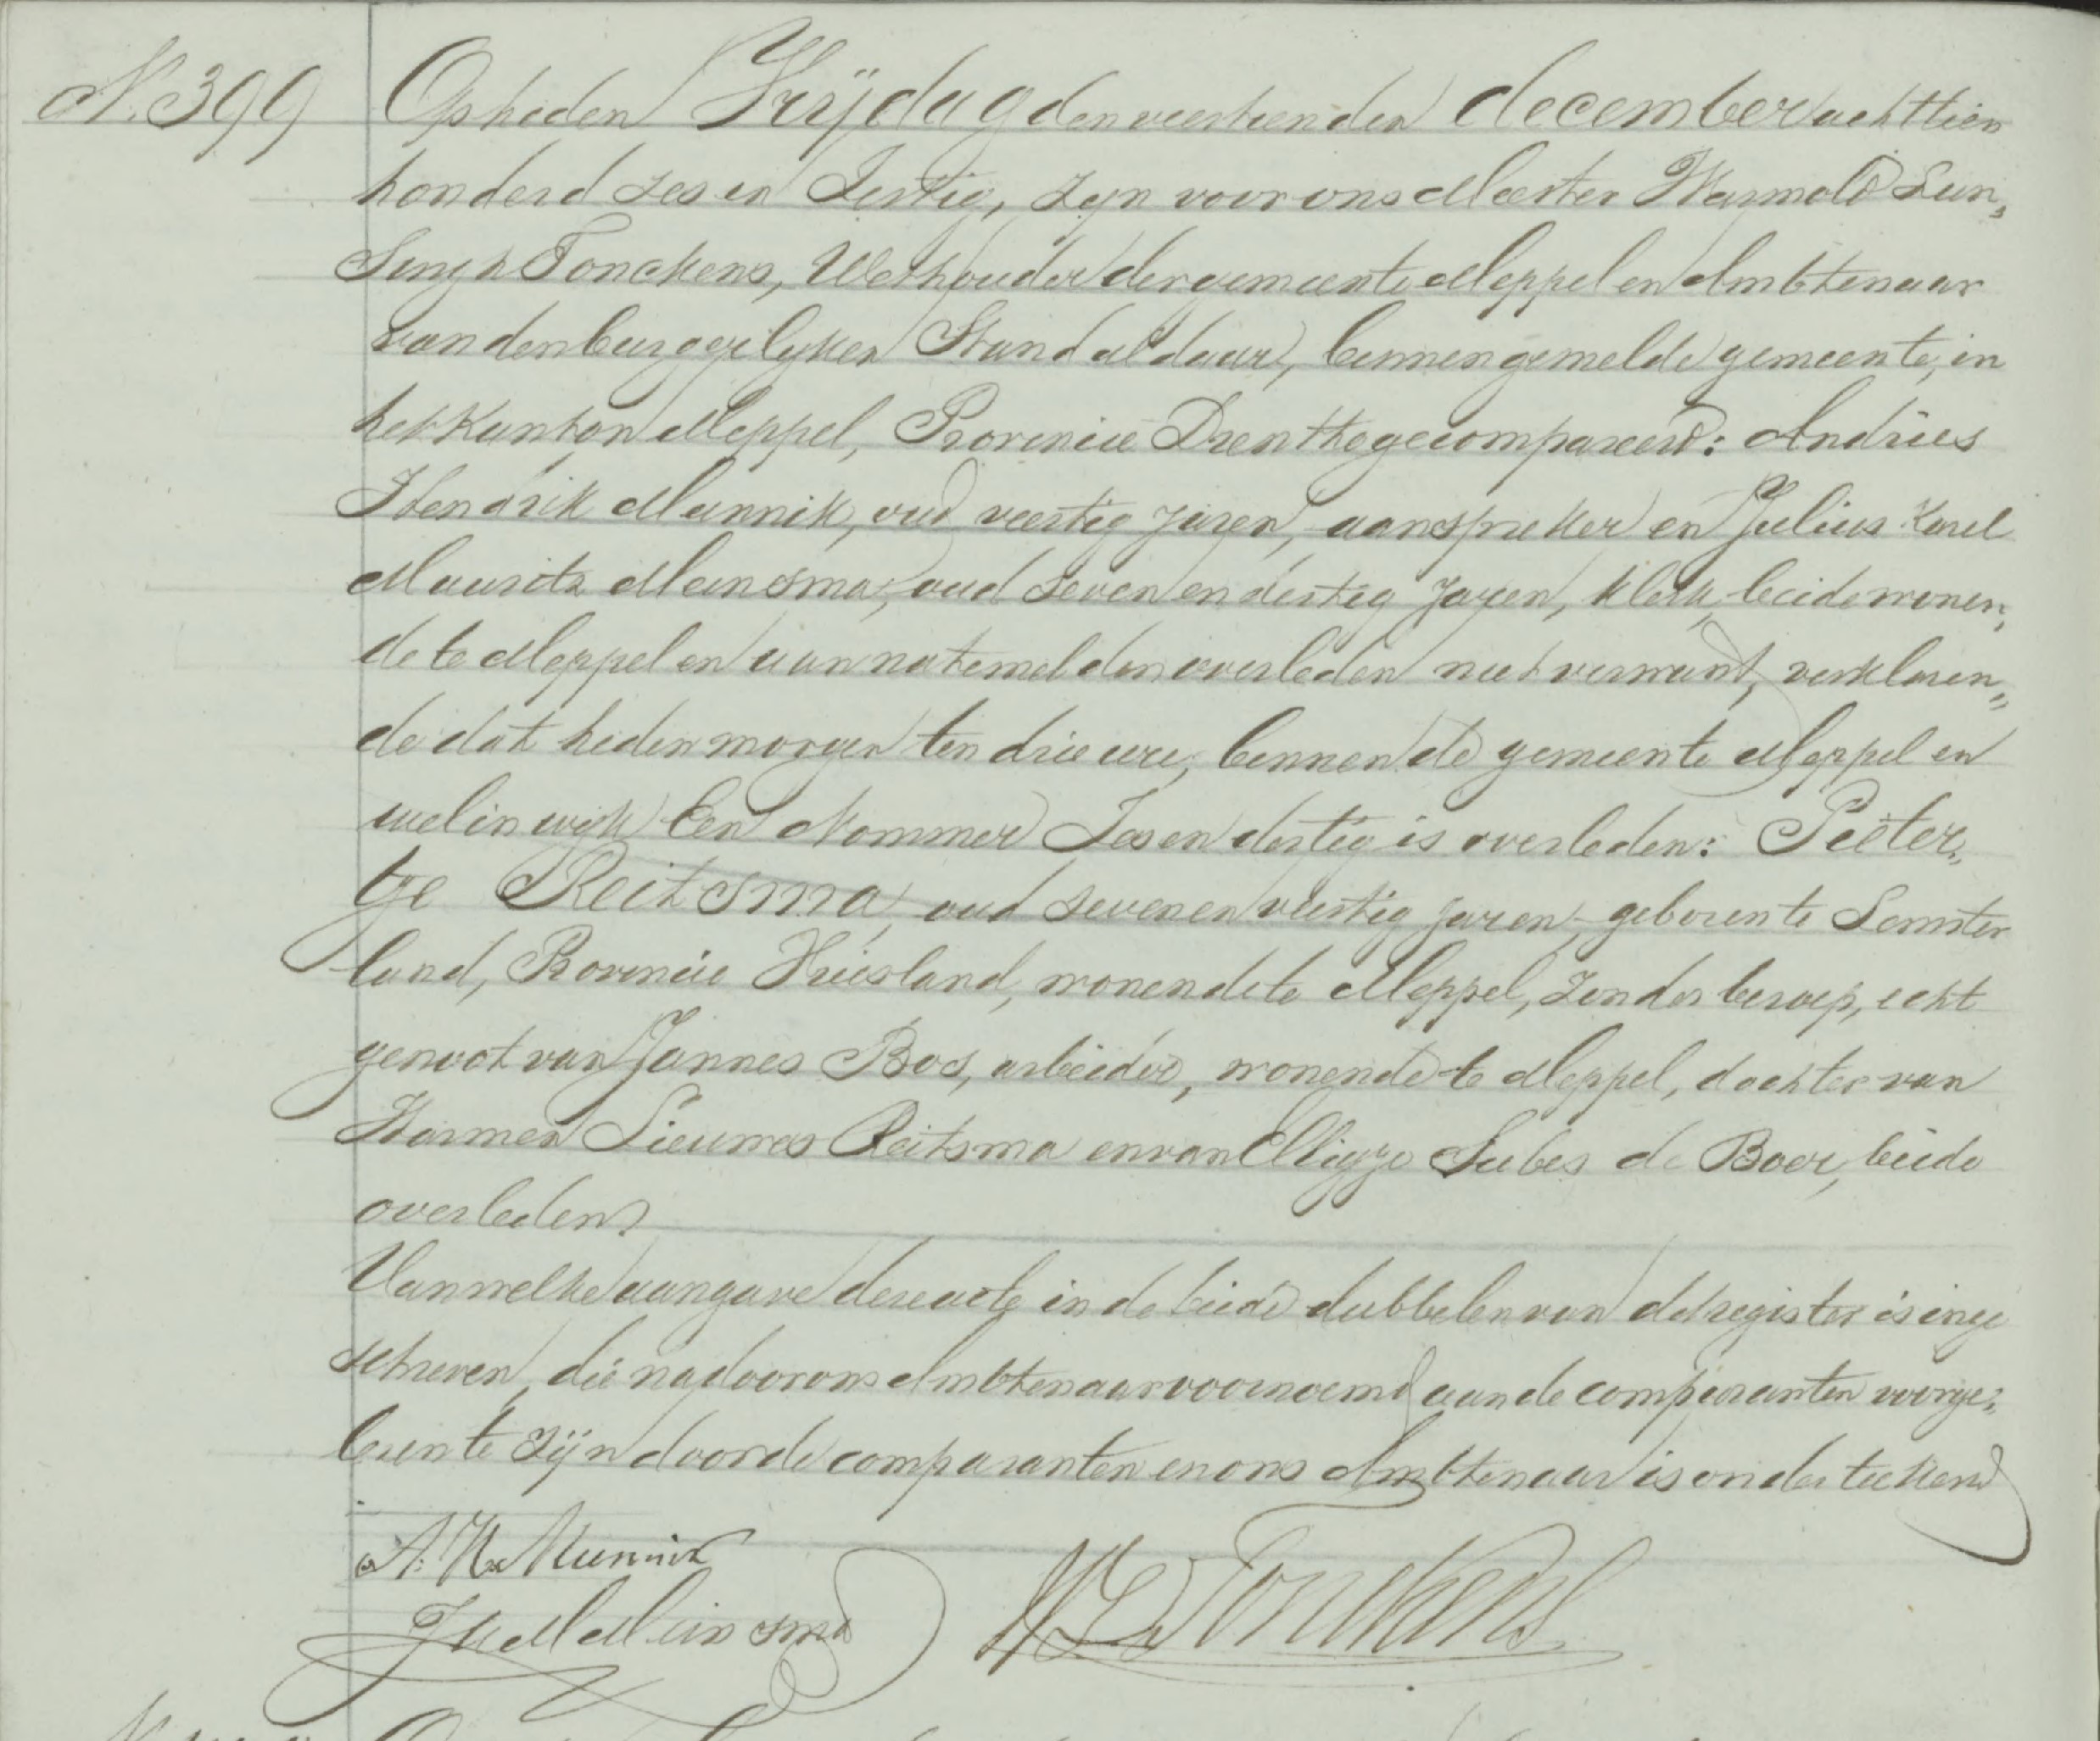 N. 399
Op heden Vrijdag den veertienden december achttien
honderd zes en Zestig, zijn voor ons Meester Warmold Lun„
singh Tonckens, Wethouder der gemeente Meppel en Ambtenaar
van den burgerlyken Stand aldaar, binnen gemelde gemeente, in
het Kanton Meppel, Provincie Drenthe gecompareerd: Andries
Hendrik Munnik, oud veertig jaren, aanspreker en Julius Karel
Maurits Meinsma, oud zeven en dertig Jaren, klerk, beide wonen„
de te Meppel en aan natemelden overleden niet verwant, verklaren„
de dat heden morgen ten drie ure, binnen de gemeente Meppel en
wel in wijk Een Nommer Zes en dertig is overleden: Pieter„
tje Reitsma, oud zeven en veertig jaren, geboren te Lemster
land, Provincie Friesland, wonende te Meppel, zonder beroep, echt
genoot van Jannes Bos, arbeider, wonende te Meppel, dochter van
Harmen Sieuwes Reitsma en van Subes de Boer, beide
overleden
Van welke aangave deze acte in de beide dubbelen van het register is inge
schreven, die na door ons Ambtenaar voornoemd aan de comparanten voorge„
lezen te zijn door de comparanten en ons Ambtenaar is onderteekend
A. H. Munnik
JKM Meinsma
WL Tonckens